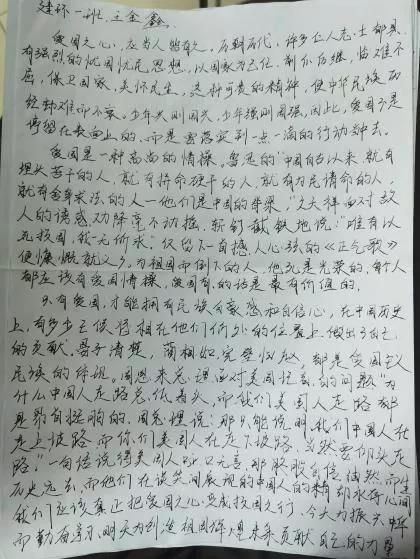 建环一班 王金鑫
爱国之心,应当人皆有之,历朝历代,许多仁人志士都具
有强烈的忧国忧民思想,以国家为己任,前仆后继,临难不
屈,保卫国家,关怀民生,这种可贵的精神,使中华民族历
经劫难而不衰。少年兴则国兴,少年强则国强,因此,爱国不是
停留在表面上的,而是需落实到一点一滴的行动中去。
爱国是一种高尚的情操。鲁迅的"中国自古以来,就有
埋头苦干的人,就有拼命硬干的人,就有为民请命的人,
就有舍身求法的人—他们是中国的脊梁"文天祥面对敌
人的诱惑劝降毫不动摇,斩钉截铁地说:"唯有以
死报国,我一无所求";仅留下一首撼人心弦的《正气歌》
便慷慨就义,为祖国而倒下的人,他死是光荣的,每个人
都应该有爱国情操,爱国者的话是最有价值的,
只有爱国,才能拥有民族自豪感和自信心,在中国历史
上,有多少王侯将相在他们所处的位置上做出了自己
的贡献,晏子清楚,蔺相如完璧归赵,都是爱国主义
民族的体现。周恩来总理面对美国记者的问题"为
什么中国人走路总低着头,而我们美国人走路都
是昂首挺胸的,周总理说:那只能说明,我们中国人在
走上坡路而你们美国人在走下坡路,当然要仰头走
路"一句话说得美国人哑口无言,那
历史远去,而他们在谈笑间展现的中国人的精神却永荷心间
我们应该真正把爱国之心变成报国之行,今天为振兴中华
而勤奋学习,明天为创造祖国辉煌未来贡献自己的力量